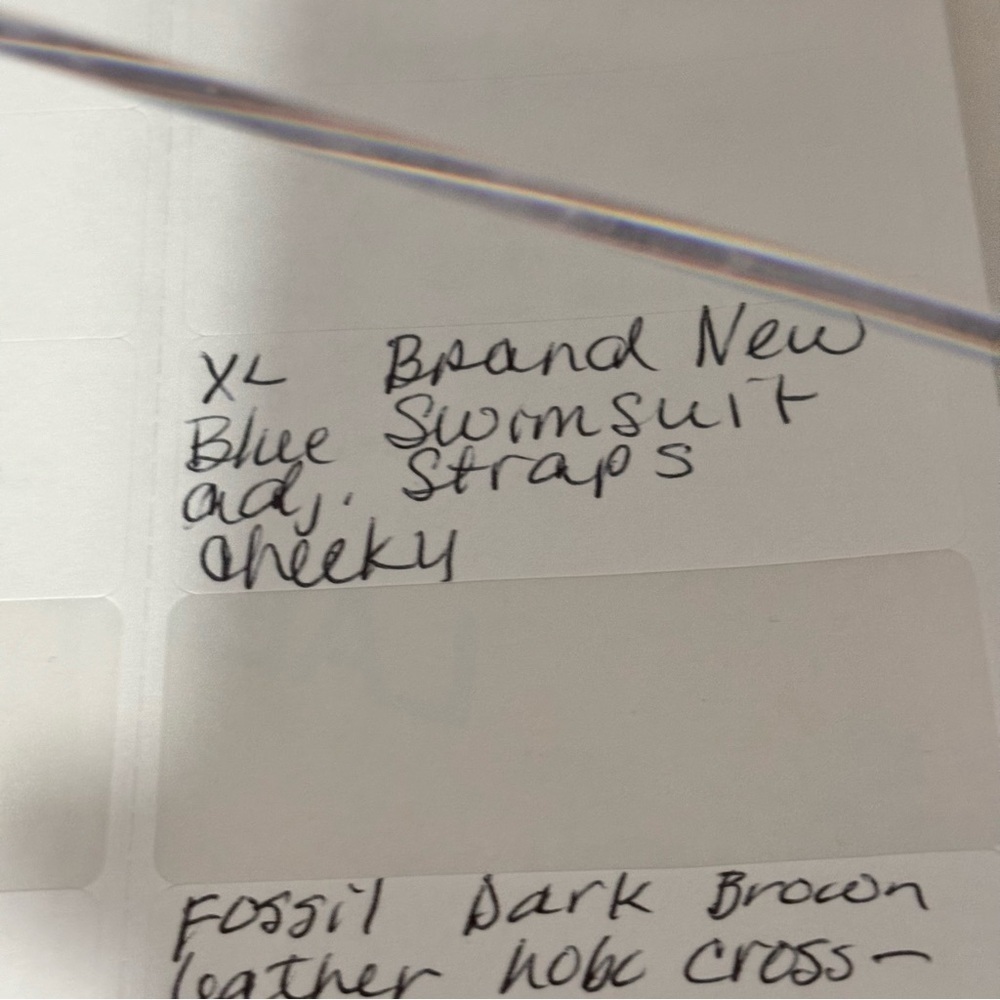 XL Brand New
Blue Swimsuit
adj. Straps
Cheeky
Fossil Dark Brown
leather hobo cross-